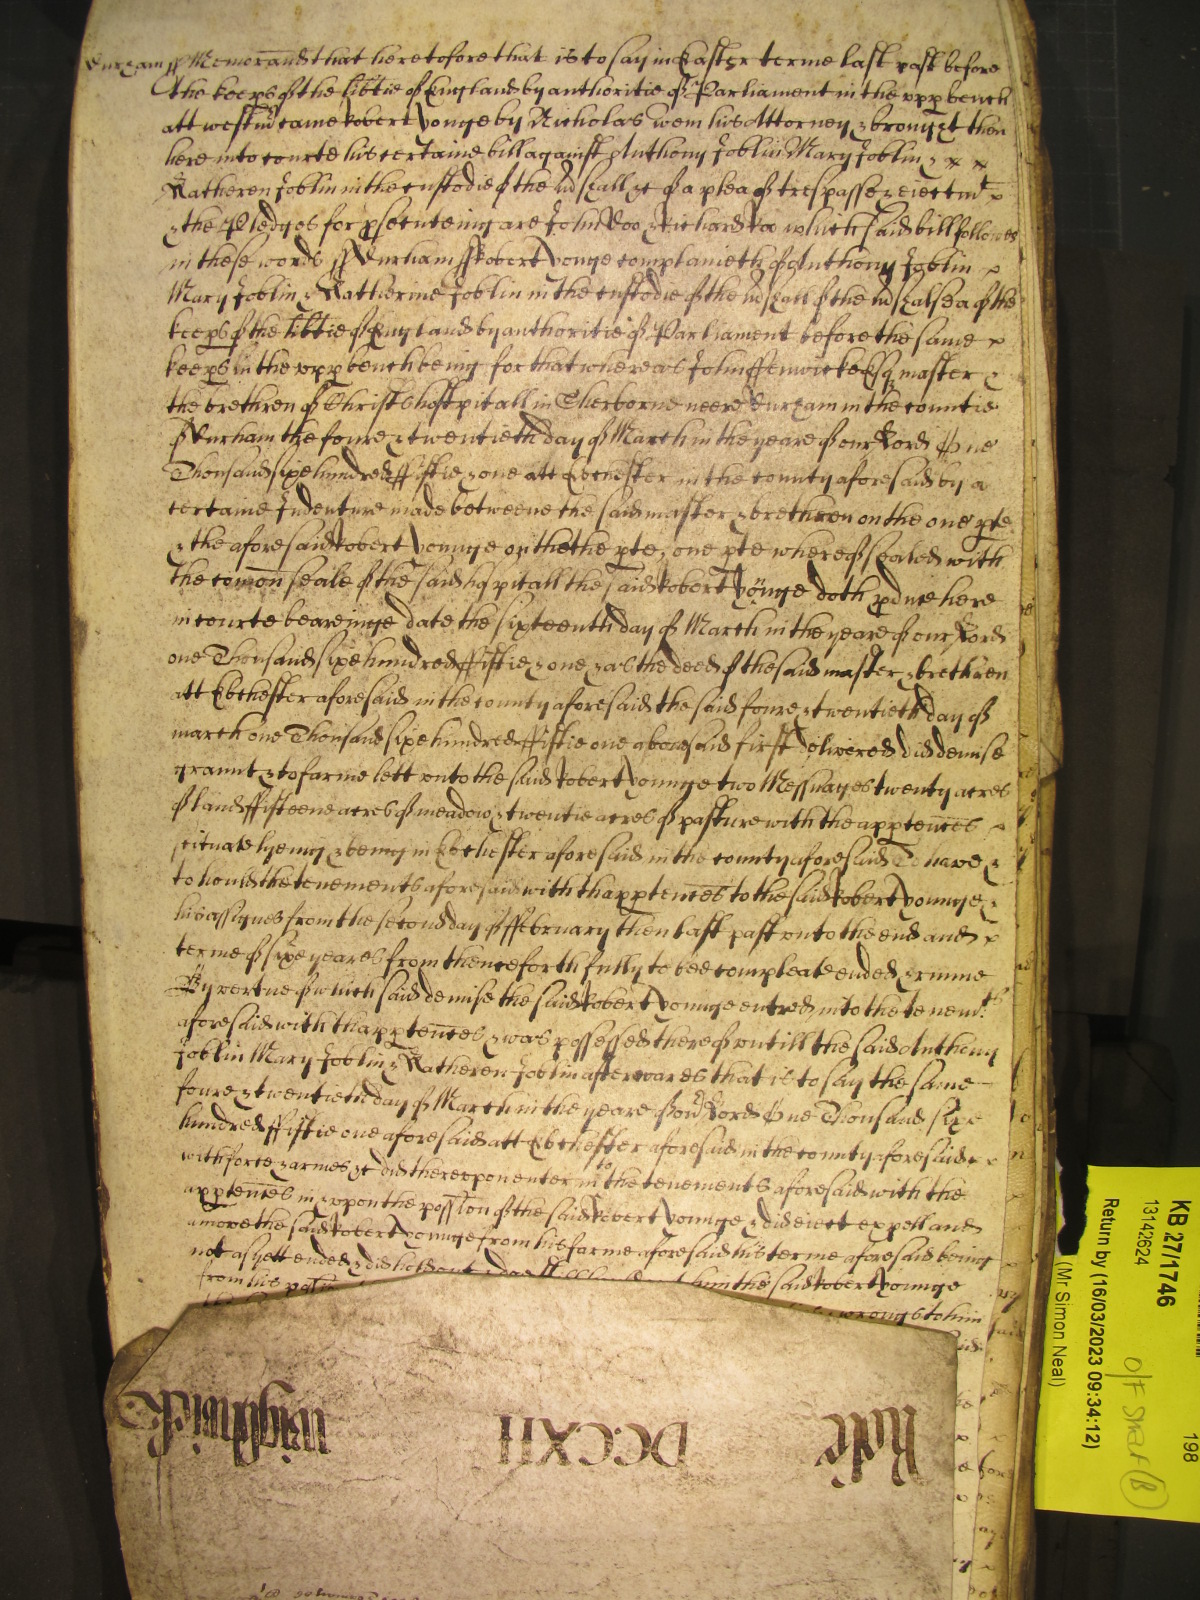 Durham ss Memorand that heretofore that is to say in Easter terme last past before
the keeps of the libtie of England by authoritie of Parliament in the upp bench
att westmr came Robert Younge by Nicholas Wem his Attorney & brought then
here into courte his certaine bill against Anthony Joblin Mary Joblin &
Katheren Joblin in the custodie of the Mshall &c of a plea of trespasse & eiectmt
& the Pledges for psecuteing are John Doo & Richard Roo which said bill followes
in these words ss Durham ss Robert Younge complaineth of Anthony Joblin
Mary Joblin & Katherine Joblin in the custodie of the Mshall of the Mshalsea of the
keeps of the libtie of England by authoritie of Parliament before the same
keeps in the upp bench being for that whereas John Ffenwicke Esqr master &
the brethren of Christs hospitall in Sherborne neere Durham in the countie
of Durham the foure & twentieth day of March in the yeare of our Lord One
Thousand sixe hundred Ffiftie & one att Ebchester in the county aforesaid by a
certaine Indenture made betweene the said master & brethren on the one pte
& the aforesaid Robert Younge on thother pte, one pte whereof sealed with
the comon seale of the said hospitall the said Robert Younge doth pduce here
in courte beareinge date the sixteenth day of March in the yeare of our Lord
one Thousand sixe hundred Ffiftie & one & as the deed of the said master & brethren
att Ebchester aforesaid in the county aforesaid the said foure & twentieth day of
march one Thousand sixe hundred Ffiftie one abovesaid first delivered did demise
graunt & to farme lett unto the said Robert Younge two Messuages twenty acres
of land Ffifteene acres of meadow & twentie acres of pasture with the apptences
scituate lyeing & being in Ebchester aforesaid in the county aforesaid To have &
to hould the tenements aforesaid with thapptences to the said Robert Younge &
his assignes from the second day of Ffebruary then last past unto the end and
terme of sixe yeares from thenceforth fully to bee compleate ended &
By vertue of which said demise the said Robert Younge entred into the tenemts
aforesaid with thapptences & was possessed thereof untill the said Anthony
Joblin Mary Joblin & Katheren Joblin afterwards that is to say the same
foure & twentieth day of March in the yeare of our Lord One Thousand sixe
hundred Ffiftie one aforesaid att Ebchester aforesaid in the county aforesaid
with force & armes &c did thereupon enter into the tenements aforesaid with the
apptences in & upon the possion of the said Robert Younge & did eiect expell and
amove the said Robert Younge from his farme aforesaid his terme aforesaid being
not as yett ended & did hold out him the said Robert Younge
from his wrongs to him
Rotlo DCCXII wightwick
KB 27/1746
13142624
Return by (16/03/2023 09:34:12)
(Mr Simon Neal)
198
O/F Shelf (B)